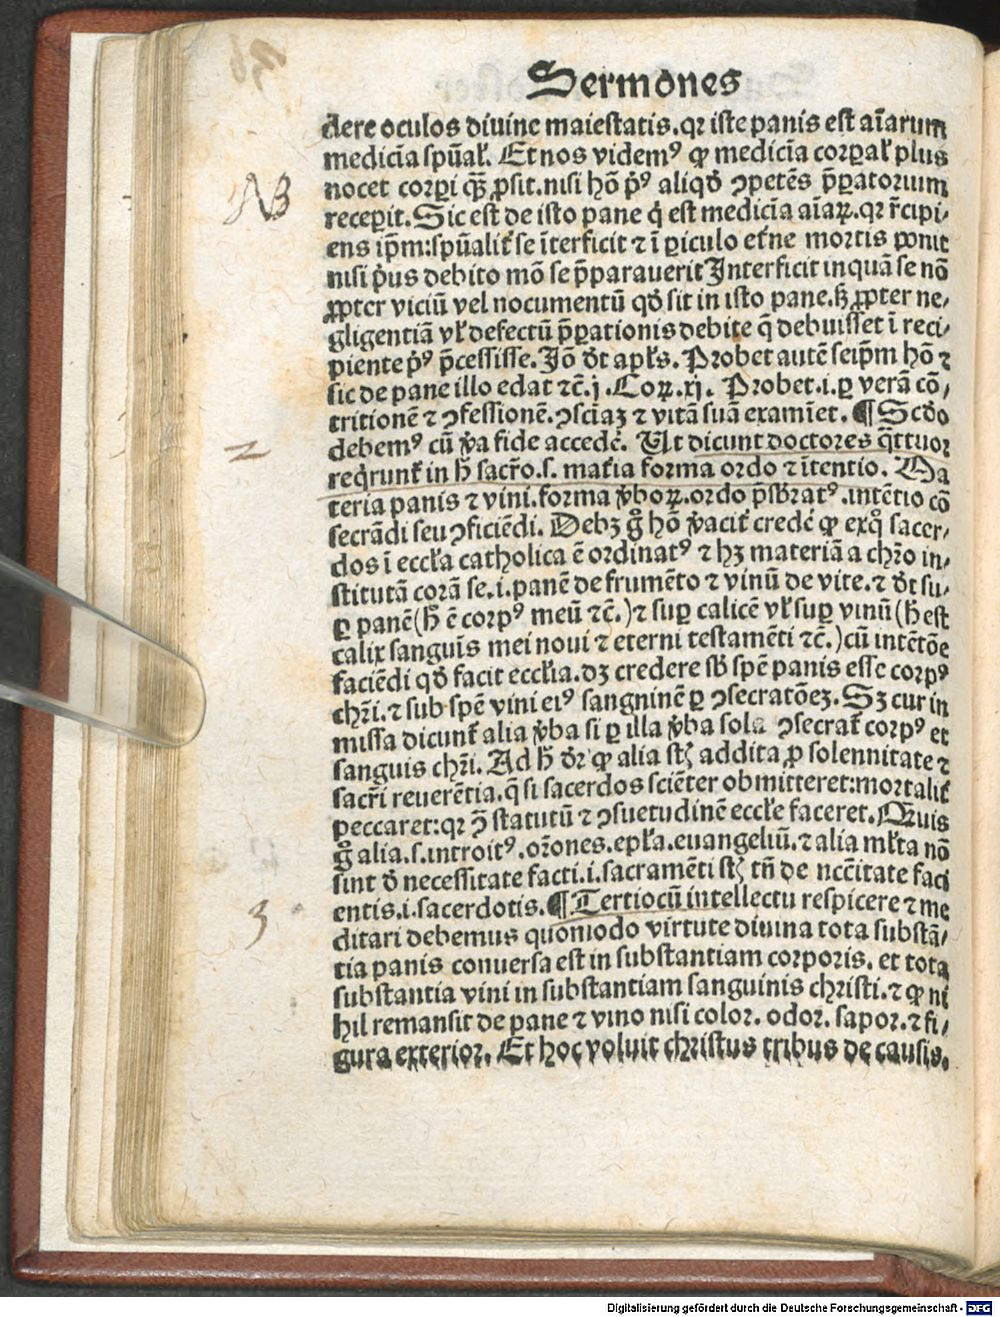 Sermones
dere oculos diuine maiestatis.qꝛ iste panis est aīarum
medicīa spūal̓. Et nos videmꝰ ꝙ medicīa corꝑal̓ plus
nocet corꝑi qꝫ̄ ꝓsit.nisi hō pͥꝰ aliqd̓ ↄpetēs p̄ꝑatorium
receꝑit. Sic est de isto pane qͥ est medicīa aīaꝝ.qꝛ r̄cipi⸗
ens ip̄m:spūalit̓ se īterficit ⁊ ī ꝑiculo et̓ne mortis ponit
nisi pͥus debito mō se p̄parauerit Interficit inquā se nō
ꝓpter viciū vel nocumentū qd̓ sit in isto pane.sꝫ ꝓpter ne⸗
gligentiā vl̓ defectū p̄ꝑationis debite q̄ debuisset ī reci⸗
piente pͥꝰ p̄cessisse. Iō d̓t apl̓s. Probet autē seip̄m hō ⁊
sic de pane illo edat ⁊c̄.j.Coꝝ.xj. Probet.i.ꝑ verā cō⸗
tritionē ⁊ ↄfessionē.ↄsciaꝫ ⁊ vitā suā examīet. ¶ Scd̓o
debemꝰ cū v̓a fide acceder̓. Ut dicunt doctores q̄ttuor
reqͥrunt̓ in h̓ sacr̄o.s. mat̓ia forma ordo ⁊ ītentio. Ma
teria panis ⁊ vini.forma v̓boꝝ.ordo p̄sb̓ratꝰ.intētio cō
secrādi seu ↄficiēdi. Debꝫ gͦ hō v̓acit̓ creder̓ ꝙ exqͦ sacer⸗
dos ī eccl̓a catholica ē ordinatꝰ ⁊ hꝫ materiā a chr̄o in⸗
stitutā corā se.i.panē de frumēto ⁊ vinū de vite.⁊ d̓t su⸗
ꝑ panē(h̓ ē corpꝰ meū ⁊c̄.)⁊ suꝑ calicē vl̓ suꝑ vinū(h̓ est
calix sanguīs mei noui ⁊ eterni testamēti ⁊c̄.)cū intētōe
faciēdi qd̓ facit eccl̓ia.dꝫ credere sb̓ spē panis esse corpꝰ
chr̄i.⁊ sub spē vini eiꝰ sangninē ꝑ ↄsecratōeꝫ. Sꝫ cur in
missa dicunt̓ alia v̓ba si ꝑ illa v̓ba sola ↄsecrat̓ corpꝰ et
sanguis chr̄i. Ad h̓ d̓r ꝙ alia st̓ addita ꝓ solennitate ⁊
sacr̄i reuerētia.q̄ si sacerdos sciēter obmitteret:mortalit̓
peccaret:qꝛ ↄ̄ statutū ⁊ ↄsuetudinē eccl̓e faceret. Qͣuis
gͦ alia.s.introitꝰ.or̄ones.epl̓a.euangeliū.⁊ alia ml̓ta nō
sint d̓ necessitate facti.i.sacramēti st̓ tn̄ de nccītate faci
entis.i.sacerdotis. ¶ Tertio cū intellectu respicere ⁊ me
ditari debemus quomodo virtute diuina tota substā⸗
tia panis conuersa est in substantiam corporis. et tota
substantia vini in substantiam sanguinis christi.⁊ ꝙ ni
hil remansit de pane ⁊ vino nisi color. odor. sapor. ⁊ fi⸗
gura exterior. Et hoc voluit christus tribus de causis.
NB
2
3
Digitalisierung gefördert durch die Deutsche Forschungsgemeinschaft - DFG